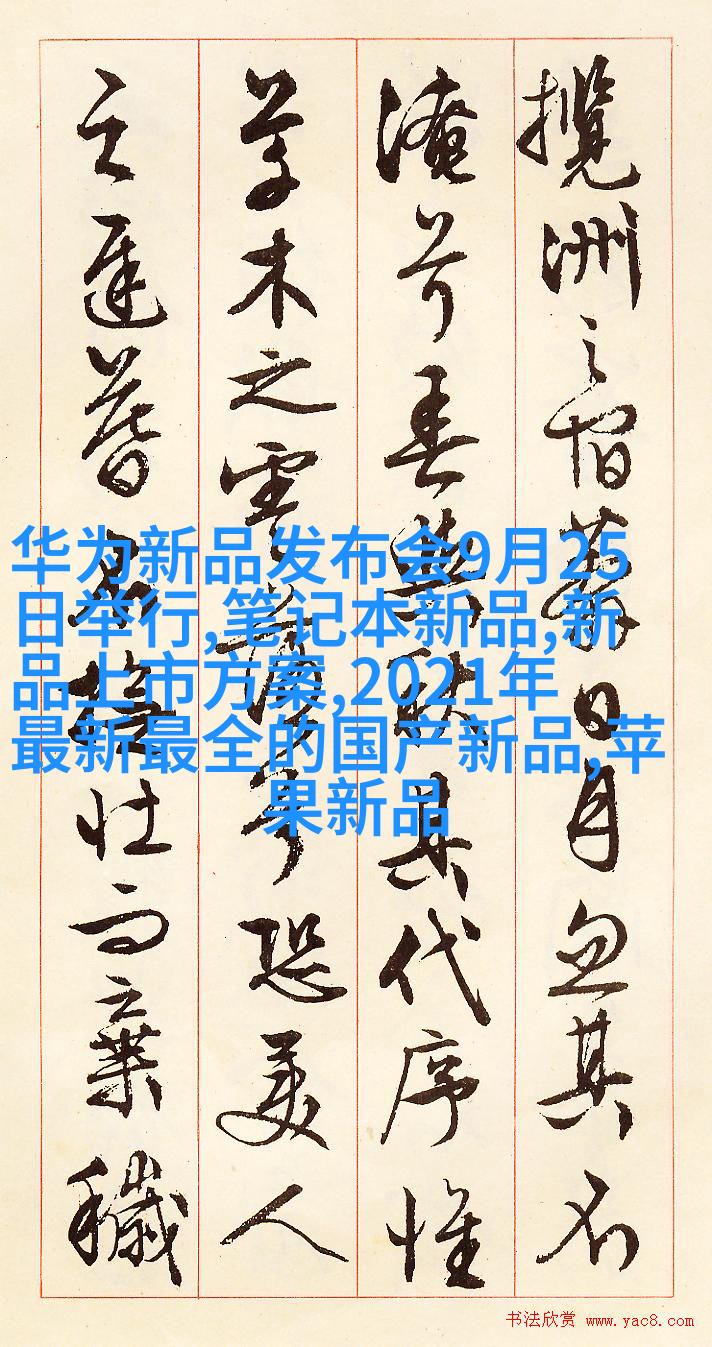 攬洲之宿莽日月忽其不
淹兮春與秋其代序惟
草木之零落兮恐美人
之遲暮壯而棄穢
华为新品发布会9月25
日举行,笔记本新品,新
品上市方案,2021年
最新最全的国产新品,苹
果新品
书法欣赏 www.yac8.com